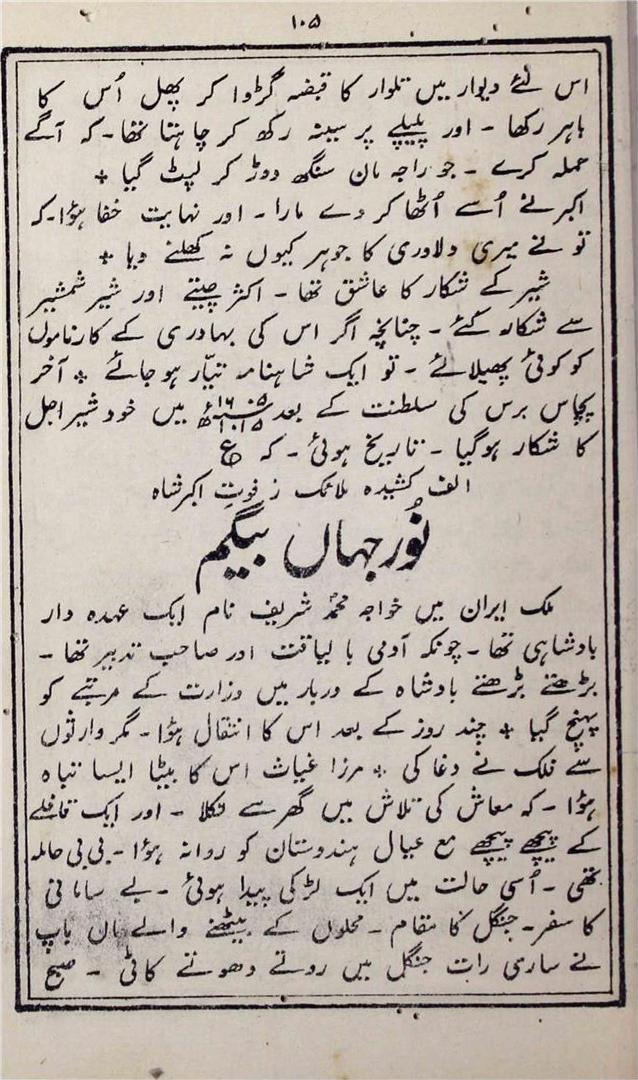 ۱۰۵
اس لئے دیوار میں تلوار کا قبضہ گڑوا کر پھل اُس کا
باہر رکھا ۔ اور پیپلے پر سینہ رکھ کر چاہتا تھا ۔ کہ آگے
حملہ کرے ۔ جو راجہ مان سنگھ دوڑ کر لپٹ گیا +
اکبر نے اُسے اُٹھا کر دے مارا ۔ اور نہایت خفا ہؤا ۔ کہ
تو نے میری دلاوری کا جوہر کیوں نہ کھلنے دیا +
شیر کے شکار کا عاشق تھا ۔ اکثر چیتے اور شیر شمشیر
سے شکار کئے ۔ چنانچہ اگر اس کی بہادری کے کارناموں
کو کوئی پھیلائے ۔ تو ایک شاہنامہ تیّار ہو جائے + آخر
پچاس برس کی سلطنت کے بعد ۱۶۰۵ء ۱۰۱۵ھ میں خود شیر اجل
کا شکار ہوگیا ۔ تاریخ ہوئی ۔ کہ ع
الف کشیدہ ملائک ز فوتِ اکبر شاہ
نُور جہاں بیگم
ملک ایران میں خواجہ محمّد شریف نام ایک عہدہ دار
بادشاہی تھا ۔ چونکہ آدمی با لیاقت اور صاحب تدبیر تھا ۔
بڑھتے بڑھتے بادشاہ کے دربار میں وزارت کے مرتبے کو
پہنچ گیا + چند روز کے بعد اس کا انتقال ہؤا ۔ مگر وارثوں
سے فلک نے دغا کی + مرزا غیاث اس کا بیٹا ایسا تباہ
ہؤا ۔ کہ معاش کی تلاش میں گھر سے نکلا ۔ اور ایک قافلے
کے پیچھے پیچھے مع عیال ہندوستان کو روانہ ہؤا ۔ بی بی حاملہ
تھی ۔ اُسی حالت میں ایک لڑکی پیدا ہوئی ۔ بے سامانی
کا سفر ۔ جنگل کا مقام ۔ محلوں کے بیٹھنے والے ماں باپ
نے ساری رات جنگل میں روتے دھوتے کاٹی ۔ صبح